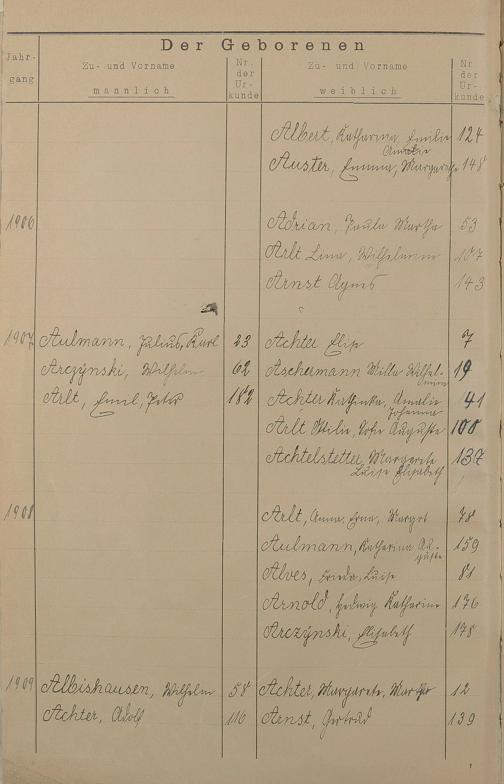 Der Geborenen
Jahr-
gang
Zu- und Vorname
männlich
Nr.
der
Ur-
kunde
Zu- und Vorname
weiblich
Nr.
der
Ur-
kunde
Albert, Katharina Emilie 124
Amalie
Auster, Emma, Margarethe 148
1906 Adrian, Paula Martha 53
Arlt Lina, Wilhelmine 107
Arnst Agnes 143
1907 Aulmann, Julius, Karl 23 Achter Elise 7
Arczynski, Wilhelm 62 Aschermann Willa Wilhel- 19
mine
Arlt, Emil, Peter 182 Achter Kathinka, Amalie 41
Johanna
Arlt Ottilie, Sofie Auguste 100
Achtelstetter, Margarete 137
Luise Elisabeth
1908 Arlt, Anna, Erna, Margot 78
Aulmann, Katharina Au- 159
guste
Alves, Frieda, Luise 81
Arnold, Hedwig Katharine 176
Arczynski, Elisabeth 178
1909 Albishausen, Wilhelm 58 Achter, Margarete, Martha 12
Achter, Adolf 116 Arnst, Gertrud 139